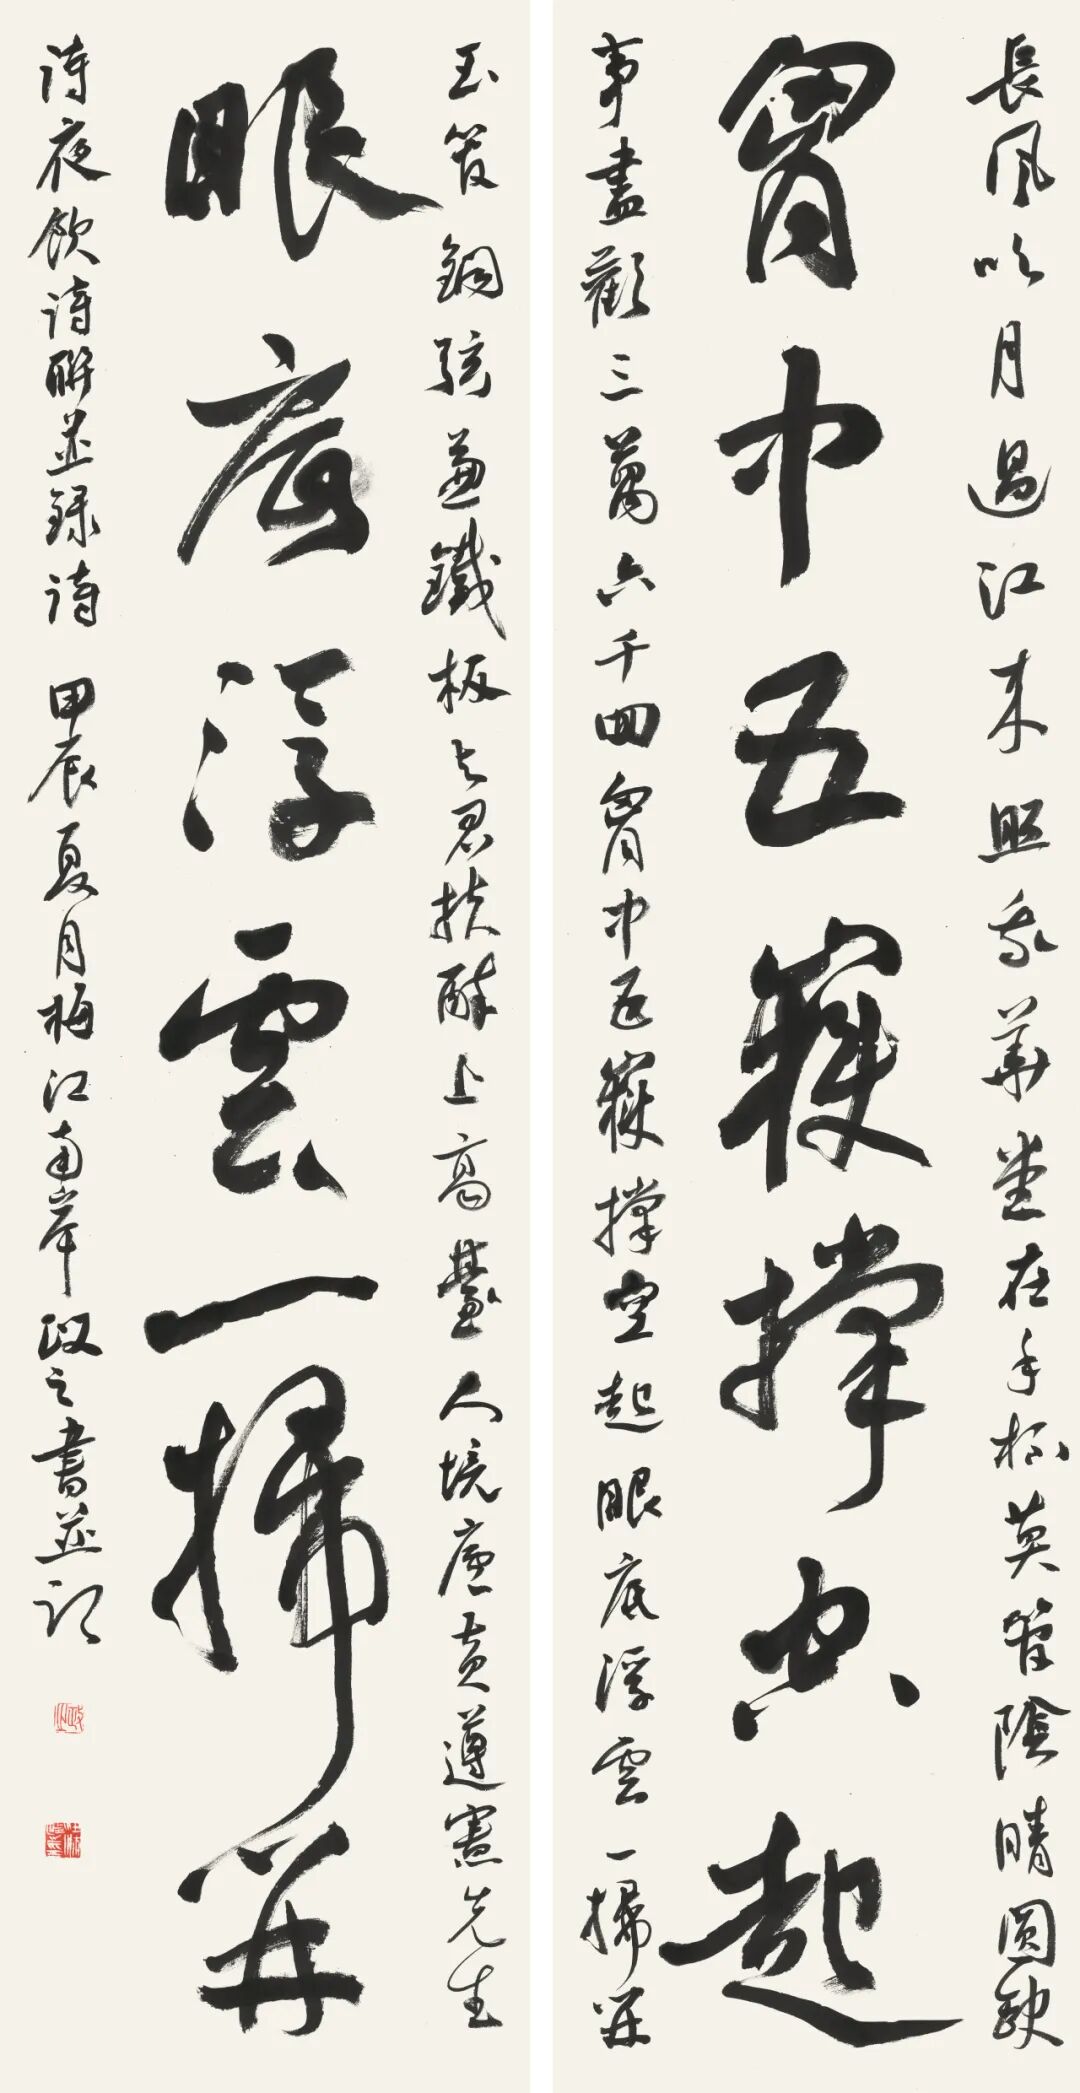 長風吹月過江來照我華堂在手杯莫管陰晴圓缺
胷中五嶽撐空起
事盡歡三萬六千囬胷中五嶽撐空起眼底浮雲一掃開
玉管銅弦兼鐵板与君扶醉上高臺人境廬黃遵憲先生
眼底浮雲一掃開
詩夜飲詩聯並錄詩 甲辰夏月梅江南岸政之書並記
政之